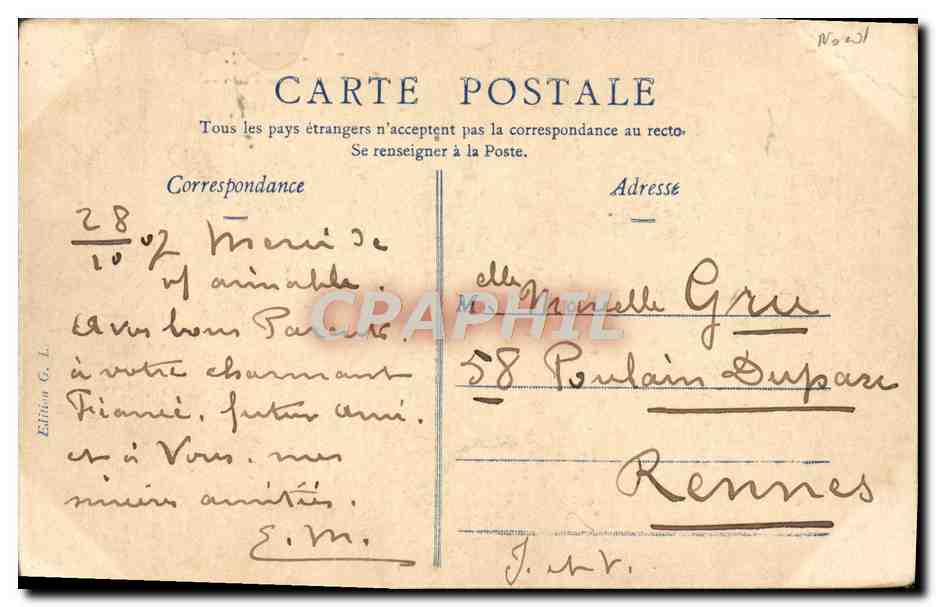 Nord
CARTE POSTALE
Tous les pays étrangers n'acceptent pas la correspondance au recto.
Se renseigner à la Poste.
Correspondance
28/10 07 Merci de
aimable.
Et vos bons Parents,
à votre charmant
Fiancé, futur ami,
et à Vous, mes
sincères amitiés.
E. M.
Edition G. L.
Adresse
Melle Marcelle Gru
58 Poulain Duparc
Rennes
I. et V.
CRAPHIL